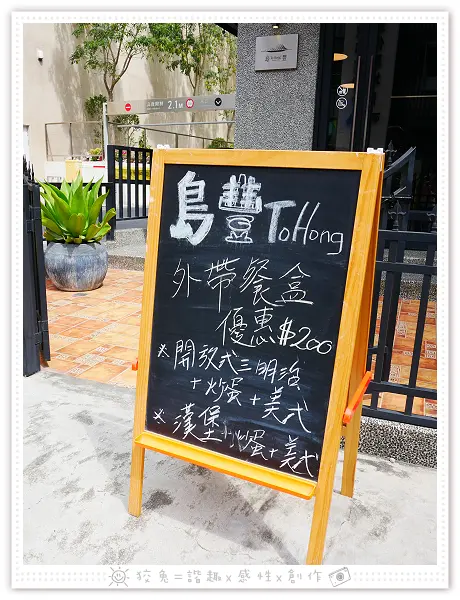 島豐
品龍郵輪
2.1M
島豐 ToHong
外帶餐盒
優惠$200
※開放式三明治
+炒蛋+美式
※漢堡+炒蛋+美式
狡兔=諧趣x感性x創作